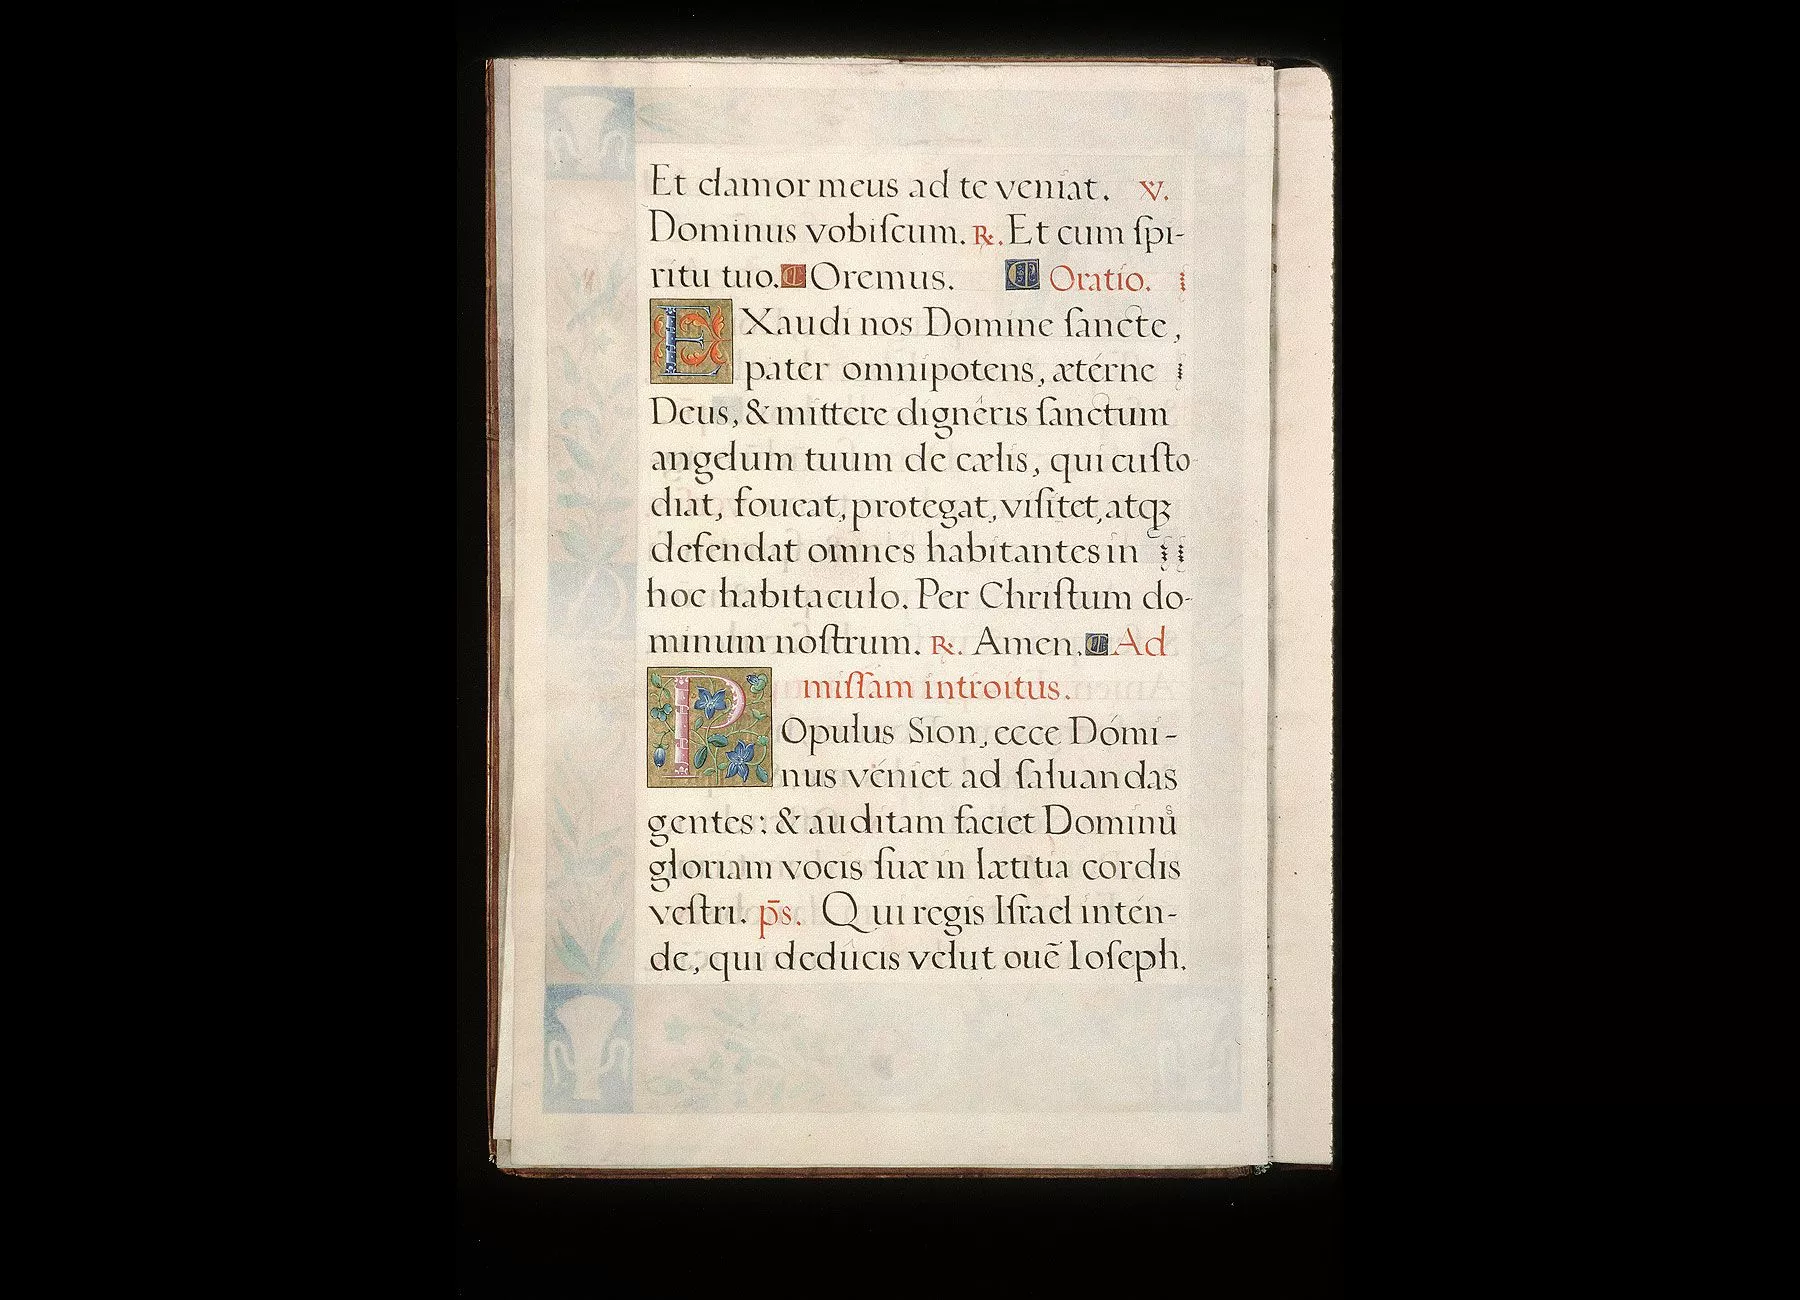 Et clamor meus ad te veniat. ℣.
Dominus vobiſcum. ℟. Et cum ſpi-
ritu tuo. Oremus. Oratio.
EXaudi nos Domine ſancte,
pater omnipotens, ætérne
Deus, & mittere dignêris ſanctum
angelum tuum de cælis, qui cuſto
diat, foueat, protegat, viſitet, atqꝫ
defendat omnes habitantes in
hoc habitaculo. Per Chriſtum do-
minum noſtrum. ℟. Amen. Ad
miſſam introitus.
POpulus Sion, ecce Dómi-
nus véniet ad ſaluandas
gentes: & auditam faciet Dominuͥs
gloriam vocis ſuæ in lætitia cordis
veſtri. p̄s. Qui regis Iſrael inten-
de, qui dedúcis velut ouē Ioſeph.